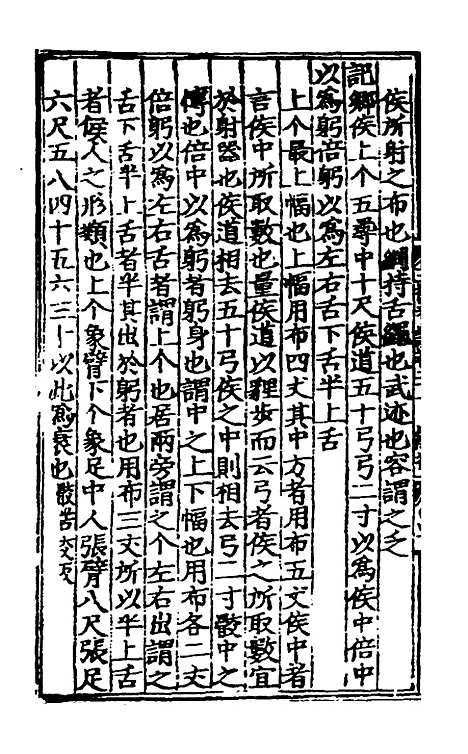 侯所射之布也綱持舌繩也武迹也容謂之乏
記鄉侯上个五尋中十尺侯道五十弓弓二寸以爲侯中倍中
以爲躬倍躬以爲左右舌下舌半上舌
上个最上幅也上幅用布四丈其中方者用布五丈侯中者
言侯中所取數也量侯道以貍步而云弓者侯之所取數宜
於射器也侯道相去五十弓侯之中則相去弓二寸骹中之
博也倍中以爲躬者躬身也謂中之上下幅也用布各二丈
倍躬以爲左右舌者謂上个也居兩旁謂之个左右出謂之
舌下舌半上舌者半其出於躬者也用布三丈所以半上舌
者侯人之形類也上个象臂下个象足中人張臂八尺張足
六尺五八四十五六三十以此爲衰也骹苦交反